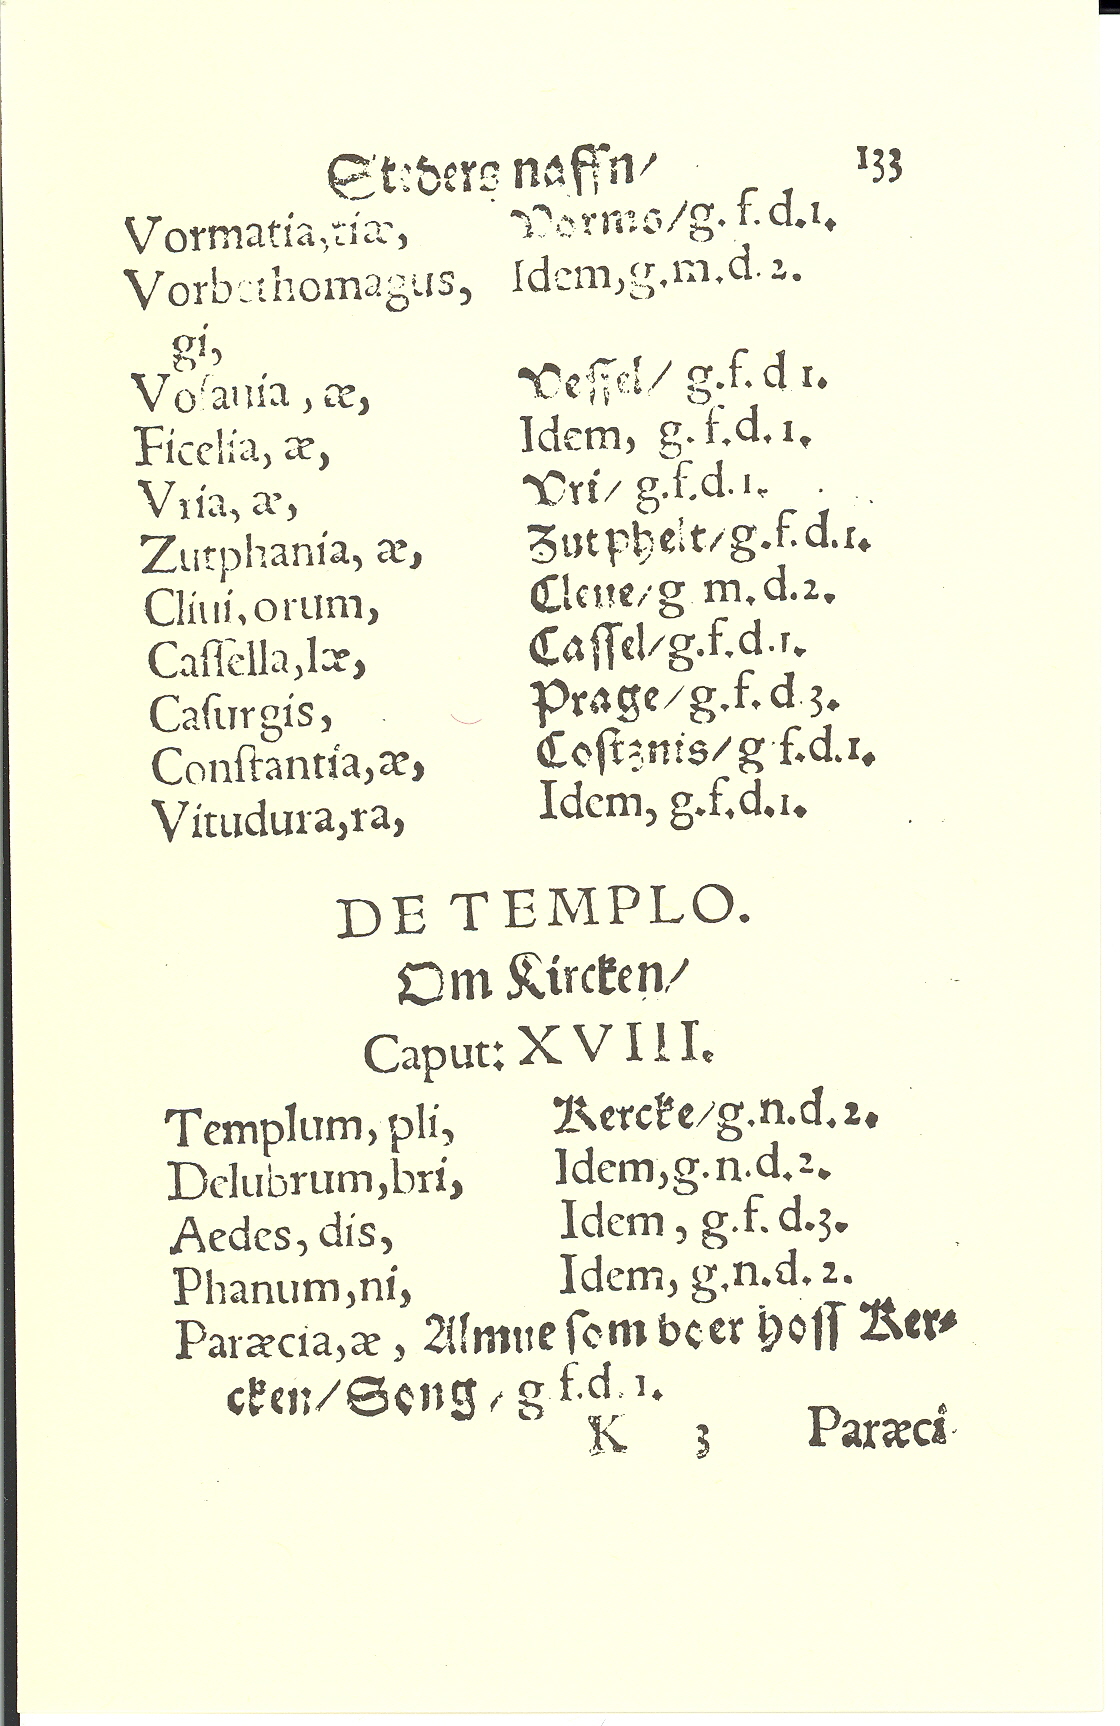 Steders naffn/ 133
Vormatia,tiæ, Vorms/g. f. d.1.
Vorbethomagus, Idem,g.m.d.2.
gi,
Voſauia , æ, Veſſel/ g.f. d 1.
Ficelia, æ, Idem, g. f.d. 1.
Vria, æ, Vri/ g.f.d.1.
Zutphania, æ, Zutphelt/g.f.d.1.
Cliui,orum, Cleue/g m. d.2.
Caſſella,læ, Caſſel/g.f.d.1.
Caſurgis, Prage/g.f. d.3.
Conſtantia,æ, Coſtznis/g f.d.1.
Vitudura,ra, Idem, g.f.d.1.
DE TEMPLO.
Om Kircken/
Caput: XVIII.
Templum, pli, Kercke/g.n.d.2.
Delubrum,bri, Idem,g.n.d.2.
Aedes, dis, Idem , g.f. d.3.
Phanum,ni, Idem, g.n.d. 2.
Paræcia,æ , Almue ſom boer hoſſ Ker-
cken/Song/g f.d. 1.
K 3 Paræci